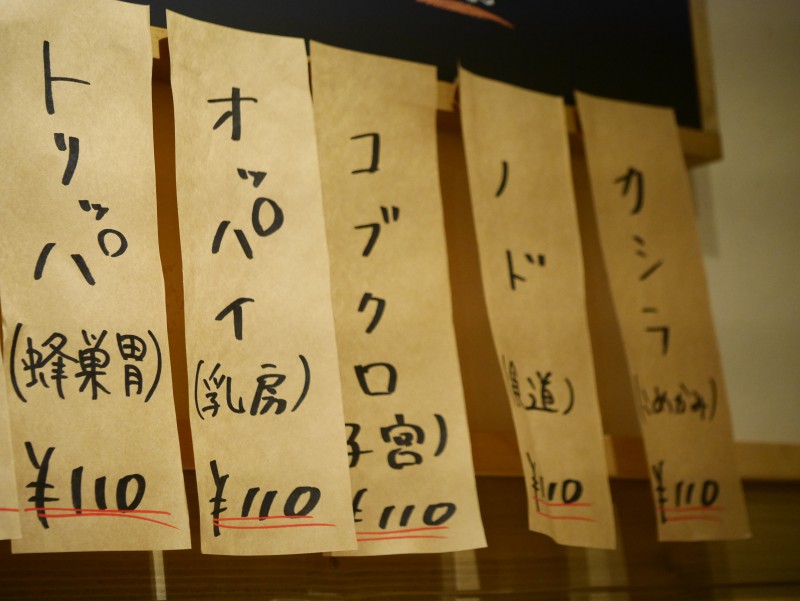 カシラ
(こめかみ)
¥110
ノド
道)
¥110
コブクロ
子宮)
¥110
オッパイ
(乳房)
¥110
トリッパ
(蜂巣胃)
¥110